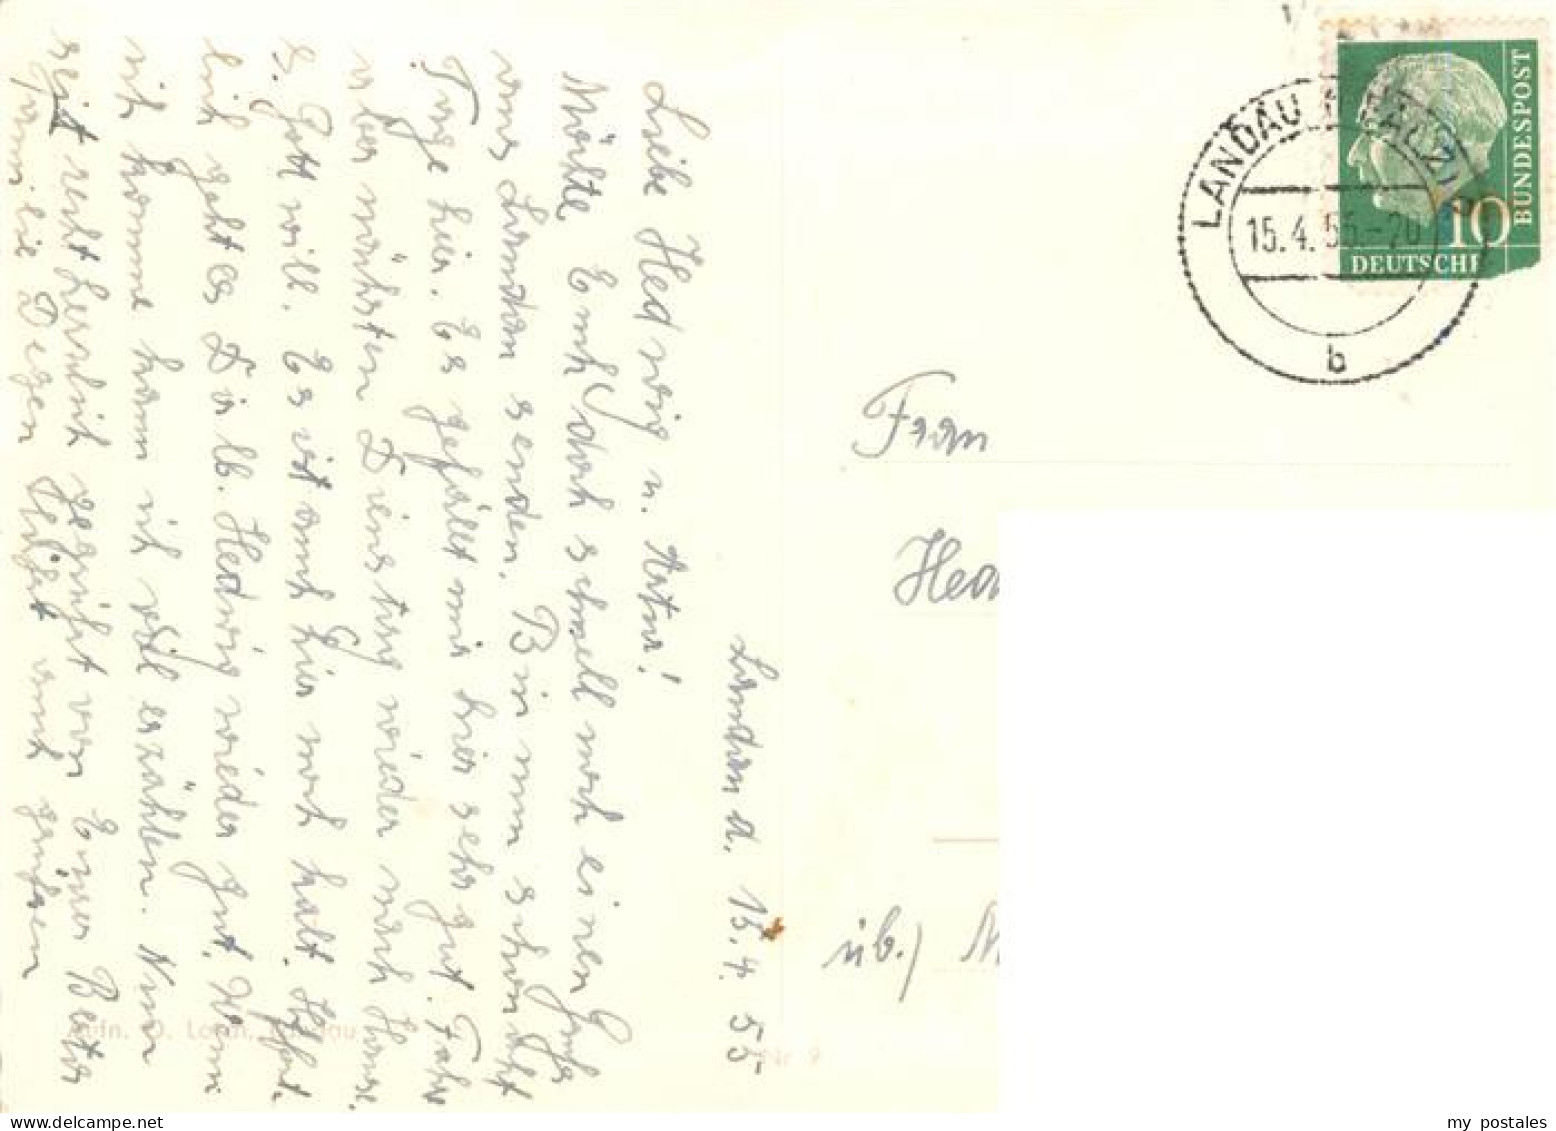 Landau d. 15.4.55
Liebe Hedwig u. Artur!
Möchte Euch doch schnell noch einen Gruß
aus Landau senden. Bin nun schon acht
Tage hier. Es gefällt mir hier sehr gut. Fahr
aber nächsten Dienstag wieder nach Hause.
s. Gott will. Es ist auch hier noch kalt. Hoffent-
lich geht es Dir lb. Hedwig wieder gut. Wenn
ich komme kann ich viel erzählen. Nun
seid recht herzlich gegrüßt von Eurer Beta
Familie Degen läßt auch grüßen
Frau
üb.)
LANDAU (PFALZ)
15.4.55-20
b
DEUTSCHE
BUNDESPOST
10
Aufn. O.
Nr. 9
my postales